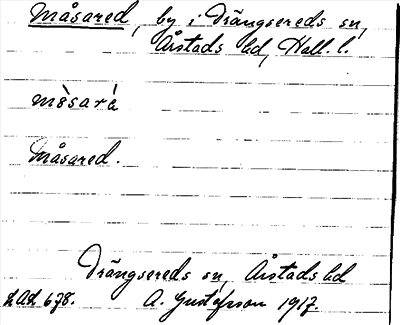 Måsared, by i Drängsereds sn,
Årstads hd, Hall. l.
mòsarè
Måsared.
Drängsereds sn, Årstads hd
A. Gustafsson 1917